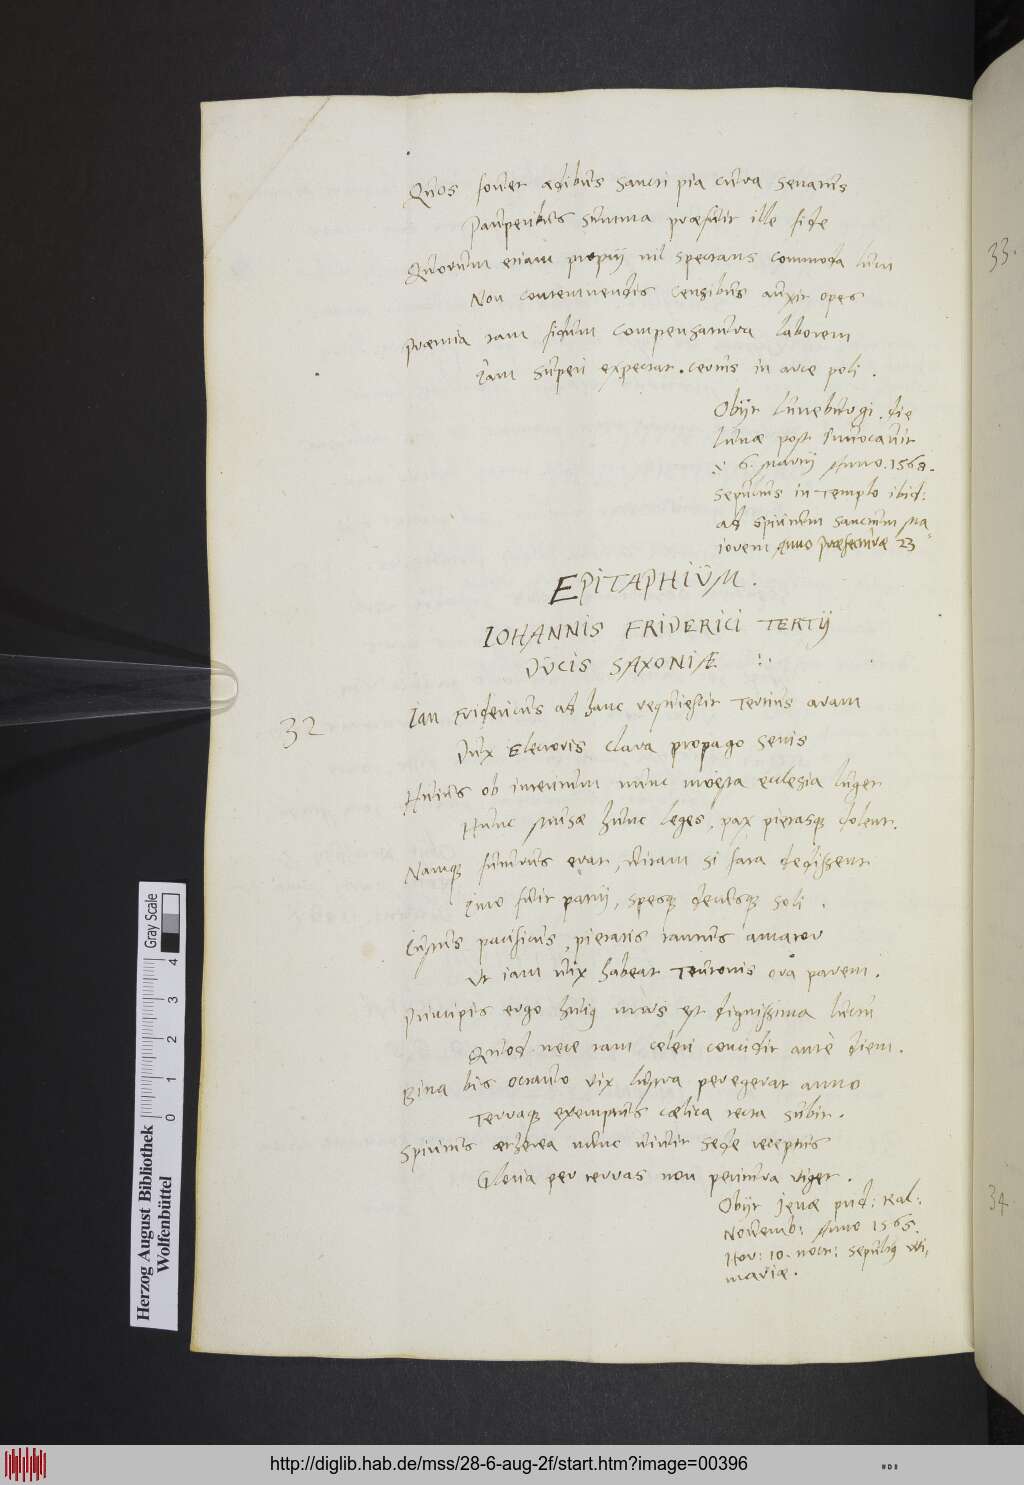 Quos fouet ædibus Sancti pia cura Senatus
Pauperibus summa præfuit ille fide
Quorum etiam proprij nil spectans commoda lucri
Non contemnendis Censibus auxit opes
Præmia tam fidum compensatura laborem
Iam superi expectat. cernis in arce poli.
Obijt Luneburgi. die
Lunæ post Inuocauit
6. Martij Anno. 1568.
Sepultus in templo ibid:
ad Spiritum Sanctum Ma
iorem Anno Præfecturæ 23
EPITAPHIUM.
IOHANNIS FRIDERICI TERTIJ
DUCIS SAXONIÆ :.
32
Ian Fridericus ad hanc requiescit Tertius aram
Dux Electoris clara propago senis
Huius ob interitum nunc moesta ecclesia luget
Hunc Musæ hunc leges, pax pietasq dolent.
Namq futurus erat, uitam si fata dedissent
Imo fuit patrij, spesq decusq soli.
Iustus pacificus, pietatis tantus amator
Ut iam uix habeat Teutonis ora parem.
Principis ergo huius mors est dignissima luctu
Quod nece tam celeri concidit antè diem.
Bina bis octauo vix lustra peregerat anno
Terraq exemptus cælica tecta subit.
Spiritus ætherea nunc uiuit sede receptus
Gloria per terras non peritura uiget.
Obijt Jenæ prid: Kal:
Nouemb: Anno 1565.
Hor: 10. noct: Sepultus Wi,
mariæ.
33.
34.
Herzog August Bibliothek
Wolfenbüttel
Gray Scale
0 1 2 3 4
http://diglib.hab.de/mss/28-6-aug-2f/start.htm?image=00396